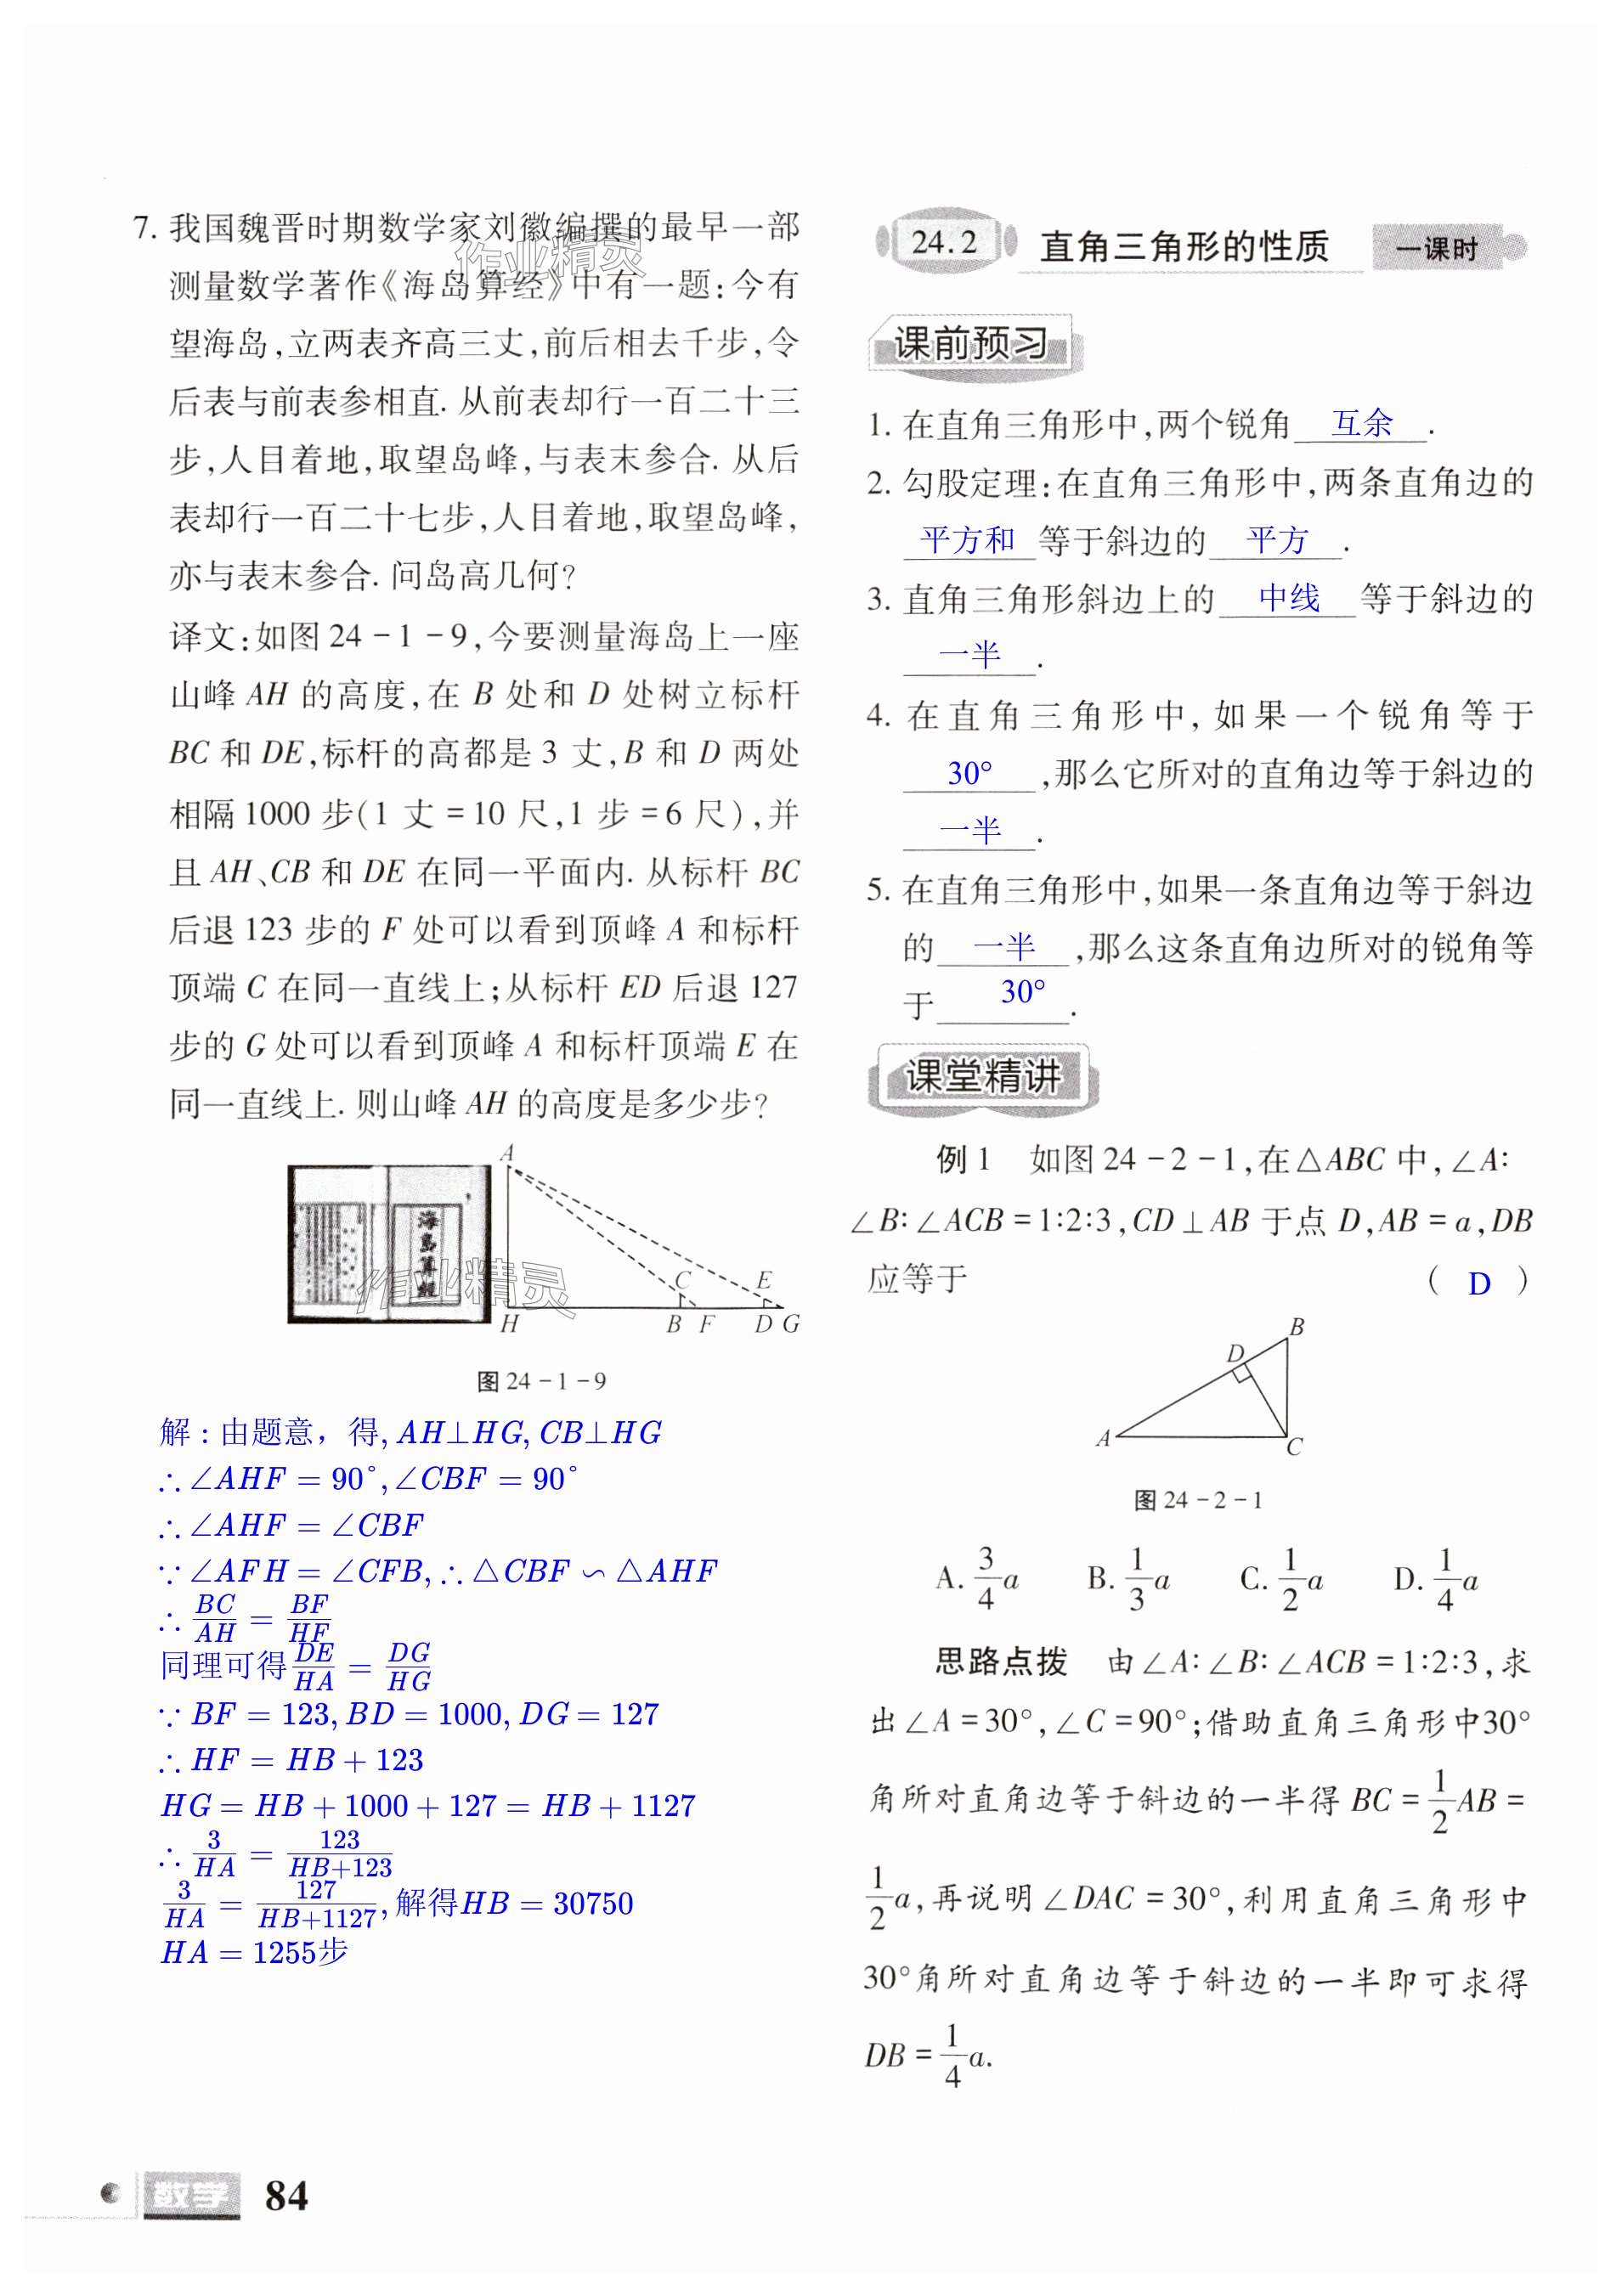 7. 我国魏晋时期数学家刘徽编撰的最早一部
测量数学著作《海岛算经》中有一题:今有
望海岛,立两表齐高三丈,前后相去千步,令
后表与前表参相直. 从前表却行一百二十三
步,人目着地,取望岛峰,与表末参合. 从后
表却行一百二十七步,人目着地,取望岛峰,
亦与表末参合. 问岛高几何?
译文:如图 24-1-9,今要测量海岛上一座
山峰 AH 的高度,在 B 处和 D 处树立标杆
BC 和 DE,标杆的高都是 3 丈,B 和 D 两处
相隔 1000 步(1 丈=10 尺,1 步=6 尺),并
且 AH、CB 和 DE 在同一平面内. 从标杆 BC
后退 123 步的 F 处可以看到顶峰 A 和标杆
顶端 C 在同一直线上;从标杆 ED 后退 127
步的 G 处可以看到顶峰 A 和标杆顶端 E 在
同一直线上. 则山峰 AH 的高度是多少步?
作业精灵
海島算經
作业精灵
A
C E
H B F D G
图 24-1-9
解:由题意,得, AH⊥HG, CB⊥HG
∴ ∠AHF = 90°, ∠CBF = 90°
∴ ∠AHF = ∠CBF
∵ ∠AFH = ∠CFB, ∴ △CBF ∽ △AHF
∴ BC/AH = BF/HF
同理可得 DE/HA = DG/HG
∵ BF = 123, BD = 1000, DG = 127
∴ HF = HB + 123
HG = HB + 1000 + 127 = HB + 1127
∴ 3/HA = 123/(HB+123)
3/HA = 127/(HB+1127), 解得HB = 30750
HA = 1255步
数学 84
24.2 直角三角形的性质 一课时
课前预习
1. 在直角三角形中,两个锐角 互余 .
2. 勾股定理:在直角三角形中,两条直角边的
平方和 等于斜边的 平方 .
3. 直角三角形斜边上的 中线 等于斜边的
一半 .
4. 在直角三角形中,如果一个锐角等于
30° ,那么它所对的直角边等于斜边的
一半 .
5. 在直角三角形中,如果一条直角边等于斜边
的 一半 ,那么这条直角边所对的锐角等
于 30° .
课堂精讲
例 1 如图 24-2-1,在△ABC 中,∠A:
∠B:∠ACB=1:2:3,CD⊥AB 于点 D,AB=a,DB
应等于 ( D )
B
D
A
C
图 24-2-1
A. 3/4 a B. 1/3 a C. 1/2 a D. 1/4 a
思路点拨 由∠A:∠B:∠ACB=1:2:3,求
出∠A=30°,∠C=90°;借助直角三角形中30°
角所对直角边等于斜边的一半得 BC=1/2 AB=
1/2 a,再说明∠DAC=30°,利用直角三角形中
30°角所对直角边等于斜边的一半即可求得
DB=1/4 a.